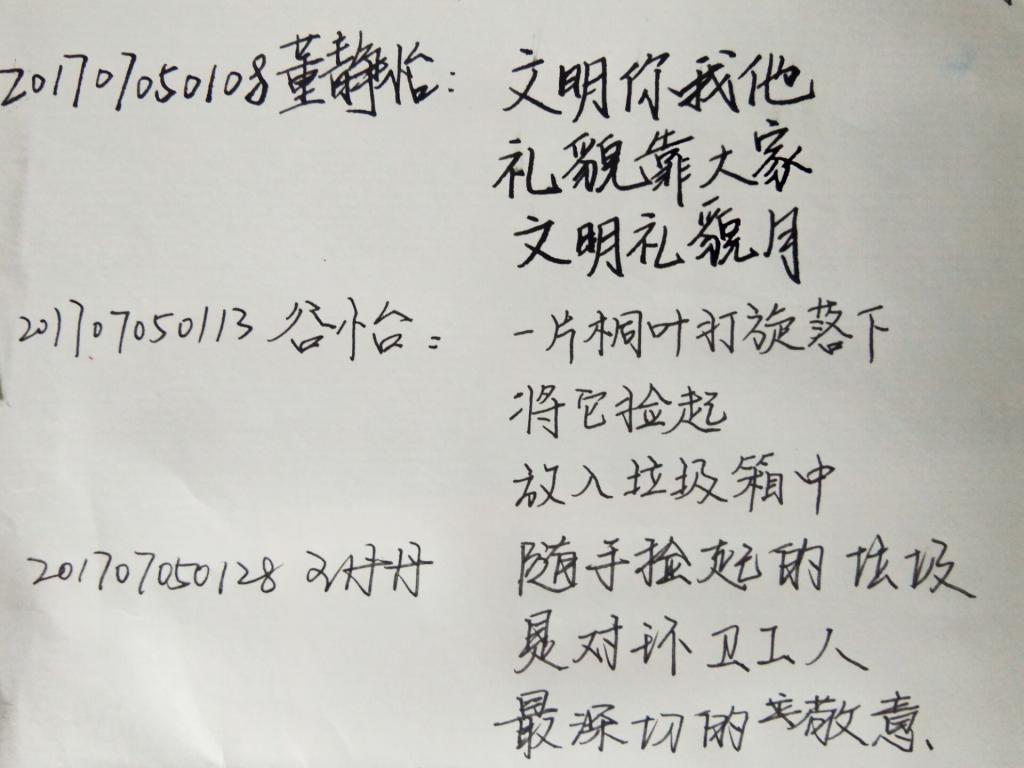 201707050108董静怡: 文明你我他
礼貌靠大家
文明礼貌月
201707050113 谷怡: 一片桐叶打旋落下
将它捡起
放入垃圾箱中
201707050128 丹丹 随手捡起的垃圾
是对环卫工人
最深切的敬意、